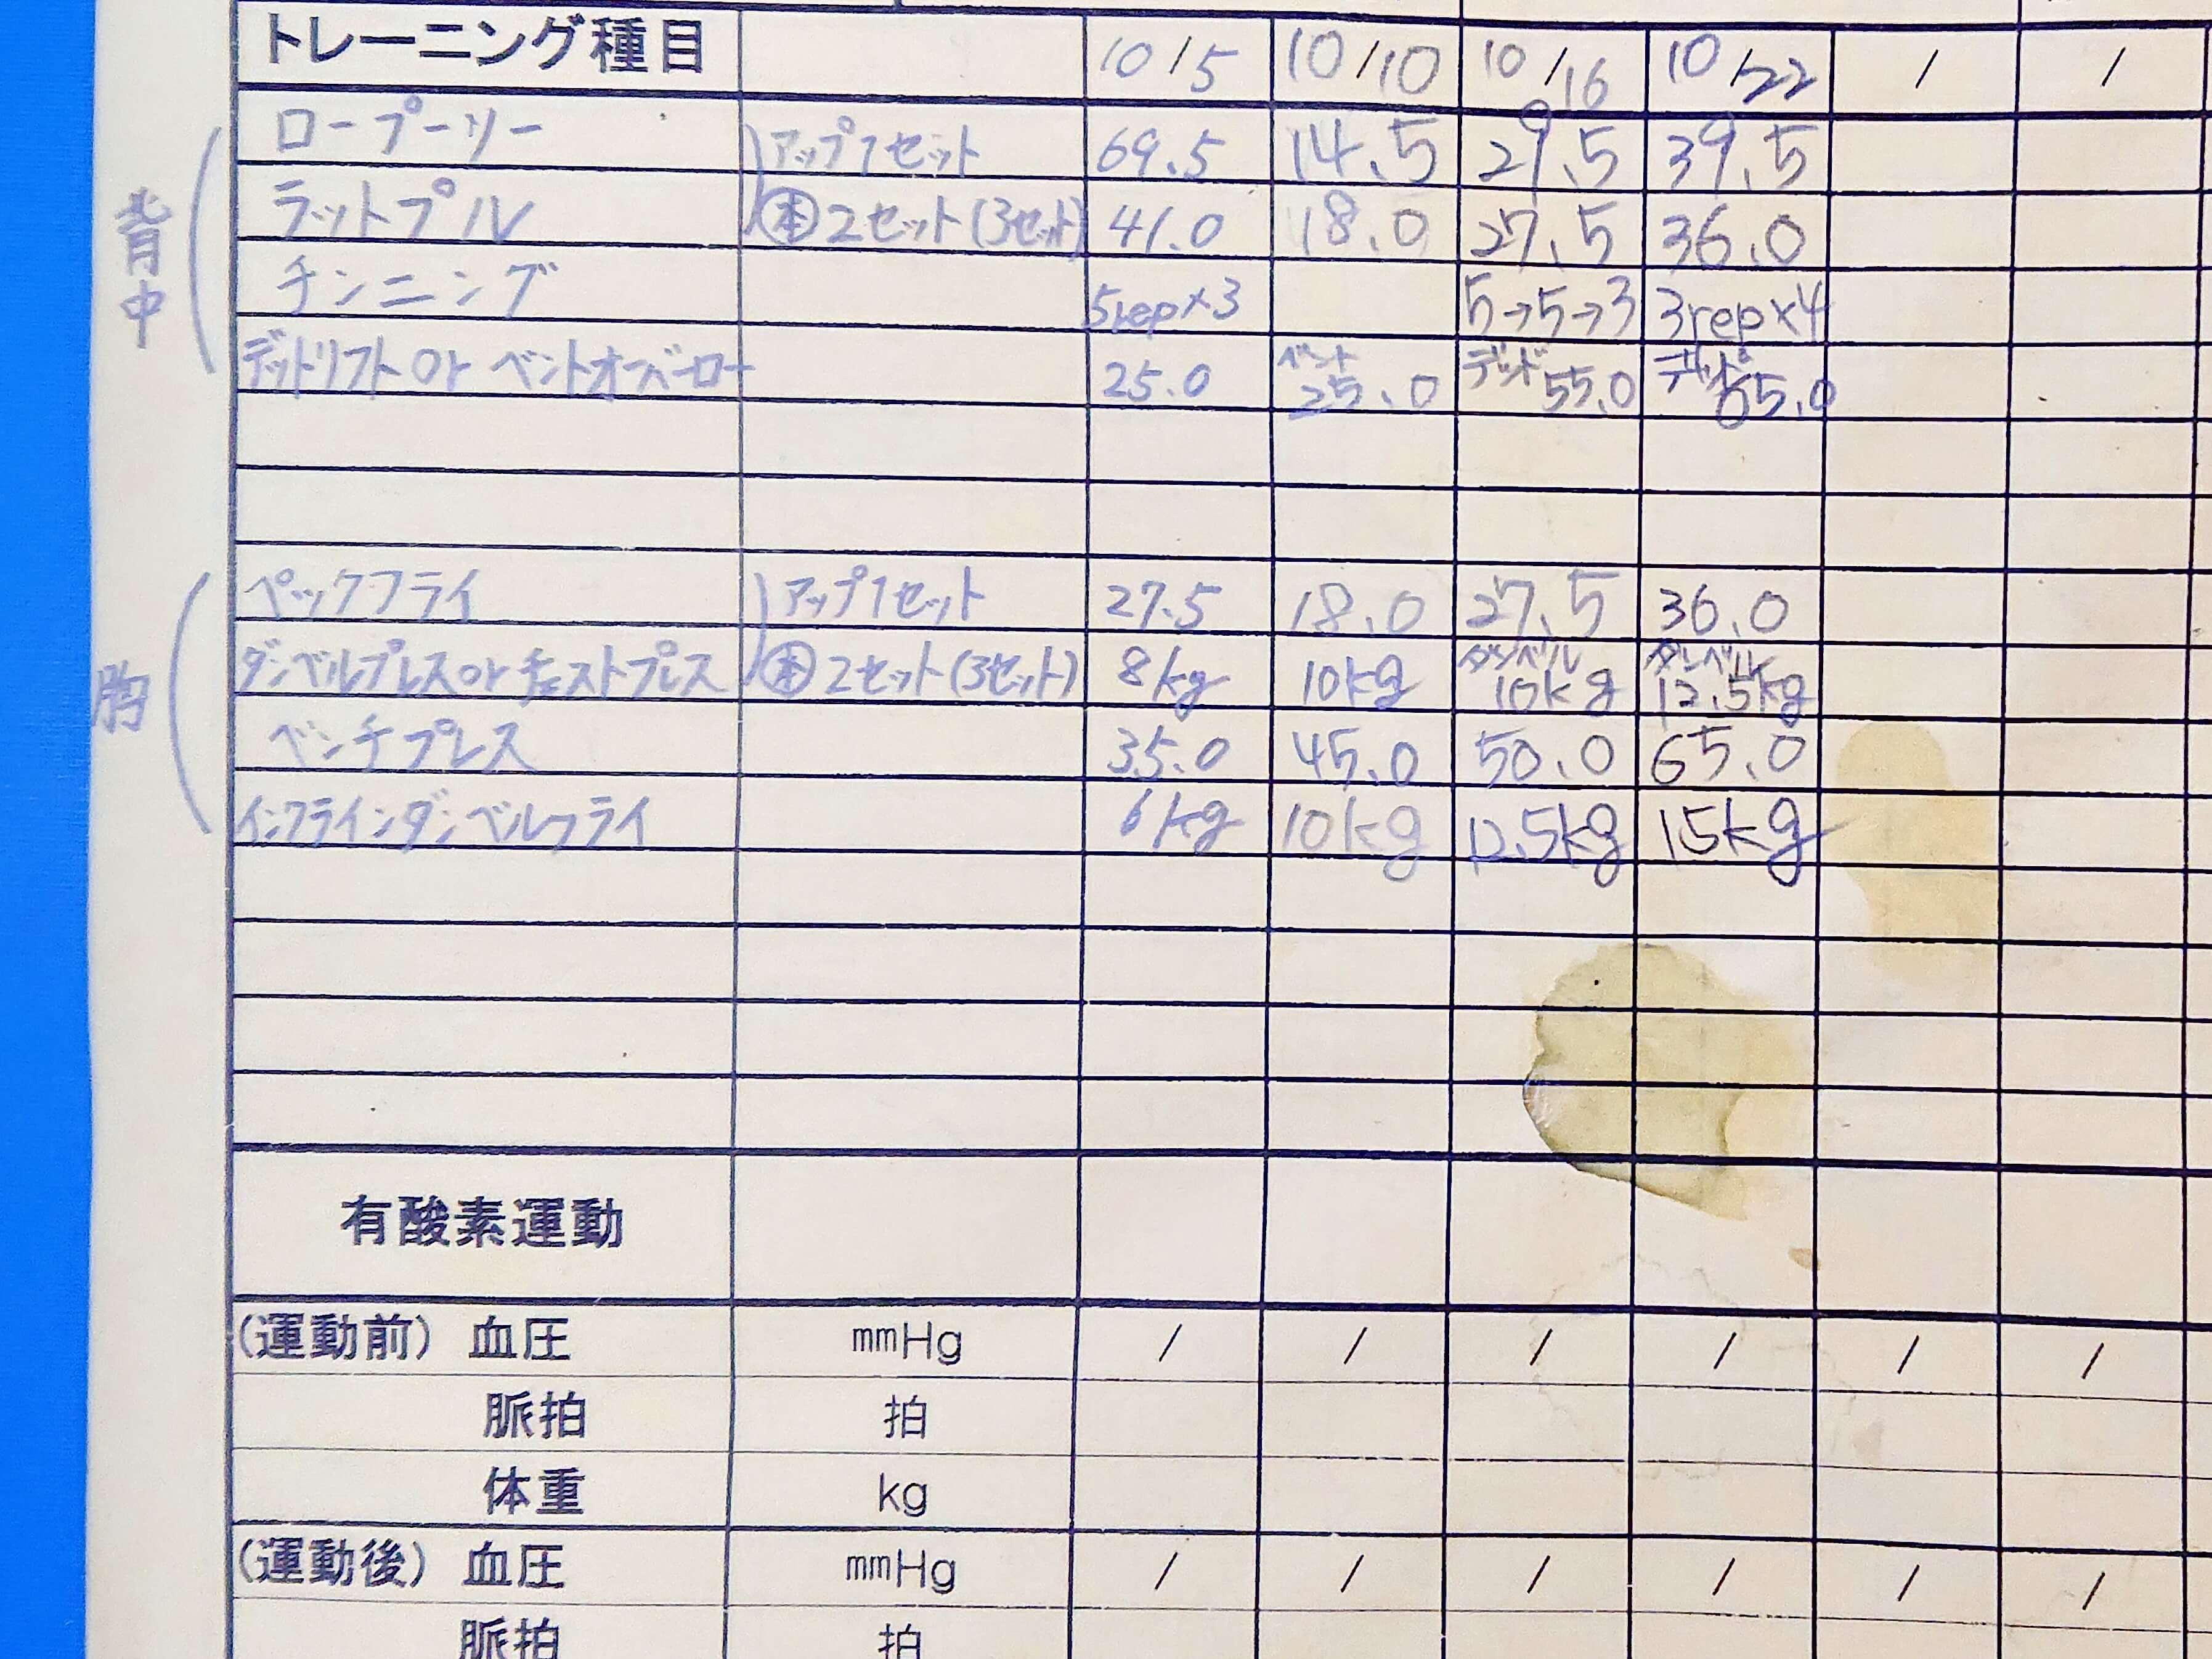 トレーニング種目 10/5 10/10 10/16 10/22 / /
背中
ロープーリー アップ1セット 69.5 14.5 29.5 39.5
ラットプル 本2セット(3セット) 41.0 18.0 27.5 36.0
チンニング 5rep×3 5→5→3 3rep×4
デットリフト or ベントオーバーロー 25.0 ベント 25.0 デッド 55.0 デッド 65.0
胸
ペックフライ アップ1セット 27.5 18.0 27.5 36.0
ダンベルプレス or チェストプレス 本2セット(3セット) 8kg 10kg ダンベル 10kg ダンベル 12.5kg
ベンチプレス 35.0 45.0 50.0 65.0
インクラインダンベルフライ 6kg 10kg 12.5kg 15kg
有酸素運動
(運動前) 血圧 mmHg / / / / / /
脈拍 拍
体重 kg
(運動後) 血圧 mmHg / / / / / /
脈拍 拍